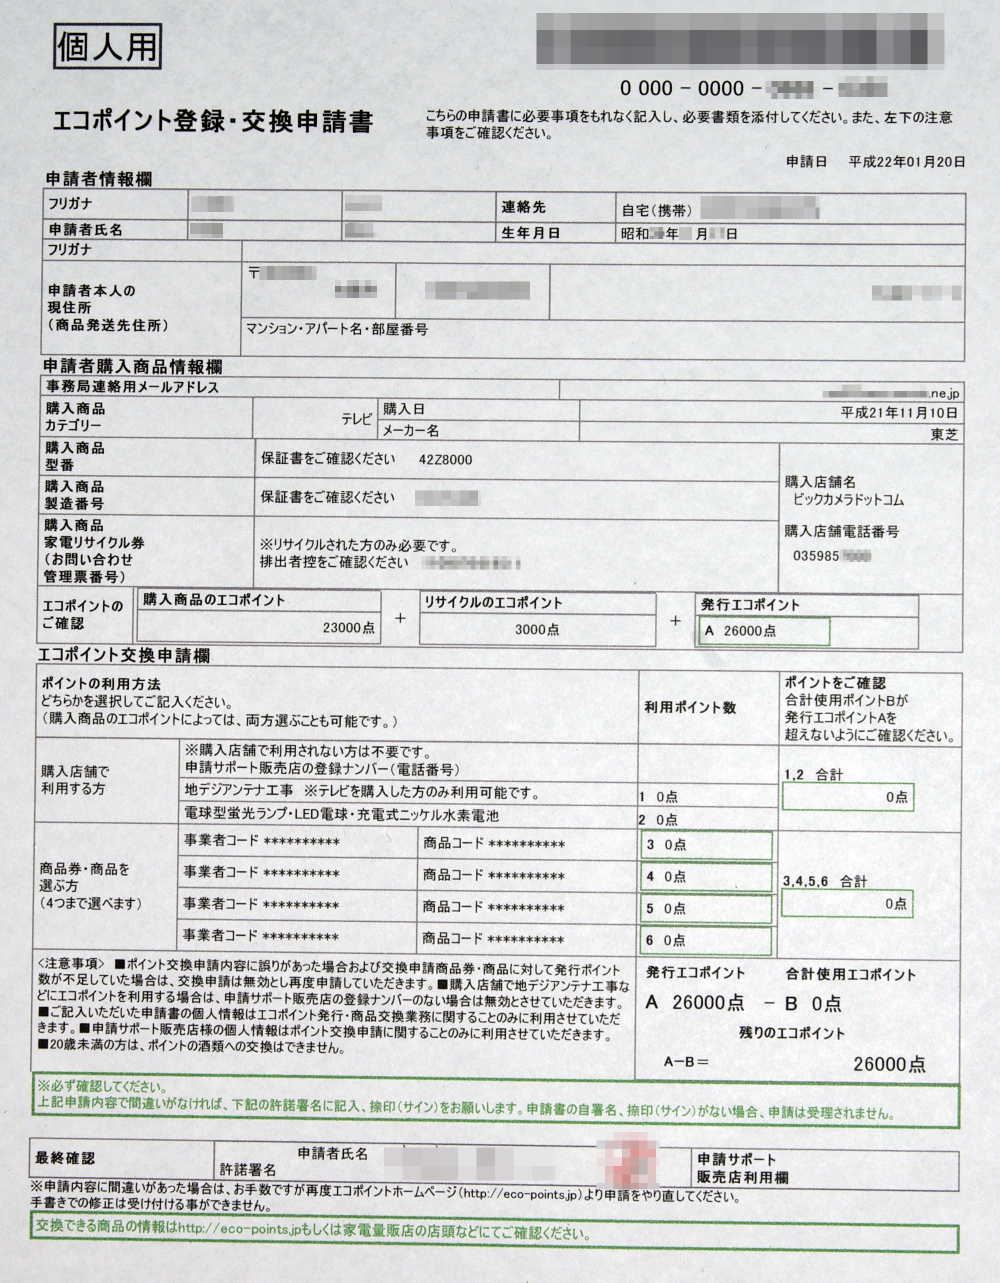 個人用
0 000 - 0000 -
エコポイント登録・交換申請書
こちらの申請書に必要事項をもれなく記入し、必要書類を添付してください。また、左下の注意
事項をご確認ください。
申請日 平成22年01月20日
申請者情報欄
フリガナ
連絡先 自宅(携帯)
申請者氏名
生年月日 昭和 年 月 日
フリガナ
申請者本人の
現住所
(商品発送先住所)
〒
マンション・アパート名・部屋番号
申請者購入商品情報欄
事務局連絡用メールアドレス .ne.jp
購入商品
カテゴリー
テレビ
購入日 平成21年11月10日
メーカー名 東芝
購入商品
型番
保証書をご確認ください 42Z8000
購入商品
製造番号
保証書をご確認ください
購入商品
家電リサイクル券
(お問い合わせ
管理票番号)
※リサイクルされた方のみ必要です。
排出者控をご確認ください
購入店舗名
ビックカメラドットコム
購入店舗電話番号
035985
エコポイントの
ご確認
購入商品のエコポイント
23000点
+
リサイクルのエコポイント
3000点
+
発行エコポイント
A 26000点
エコポイント交換申請欄
ポイントの利用方法
どちらかを選択してご記入ください。
(購入商品のエコポイントによっては、両方選ぶことも可能です。)
利用ポイント数
ポイントをご確認
合計使用ポイントBが
発行エコポイントAを
超えないようにご確認ください。
購入店舗で
利用する方
※購入店舗で利用されない方は不要です。
申請サポート販売店の登録ナンバー(電話番号)
地デジアンテナ工事 ※テレビを購入した方のみ利用可能です。
1 0点
電球型蛍光ランプ・LED電球・充電式ニッケル水素電池
2 0点
1,2 合計
0点
商品券・商品を
選ぶ方
(4つまで選べます)
事業者コード ********** 商品コード ********** 3 0点
事業者コード ********** 商品コード ********** 4 0点
事業者コード ********** 商品コード ********** 5 0点
事業者コード ********** 商品コード ********** 6 0点
3,4,5,6 合計
0点
<注意事項> ■ポイント交換申請内容に誤りがあった場合および交換申請商品券・商品に対して発行ポイント
数が不足していた場合は、交換申請は無効とし再度申請していただきます。■購入店舗で地デジアンテナ工事な
どにエコポイントを利用する場合は、申請サポート販売店の登録ナンバーのない場合は無効とさせていただきます。
■ご記入いただいた申請書の個人情報はエコポイント発行・商品交換業務に関することのみに利用させていただ
きます。■申請サポート販売店様の個人情報はポイント交換申請に関することのみに利用させていただきます。
■20歳未満の方は、ポイントの酒類への交換はできません。
発行エコポイント 合計使用エコポイント
A 26000点 - B 0点
残りのエコポイント
A-B= 26000点
※必ず確認してください。
上記申請内容で間違いがなければ、下記の許諾署名に記入、捺印(サイン)をお願いします。申請書の自署名、捺印(サイン)がない場合、申請は受理されません。
最終確認
申請者氏名
許諾署名
申請サポート
販売店利用欄
※申請内容に間違いがあった場合は、お手数ですが再度エコポイントホームページ(http://eco-points.jp)より申請をやり直してください。
手書きでの修正は受け付ける事ができません。
交換できる商品の情報はhttp://eco-points.jpもしくは家電量販店の店頭などにてご確認ください。